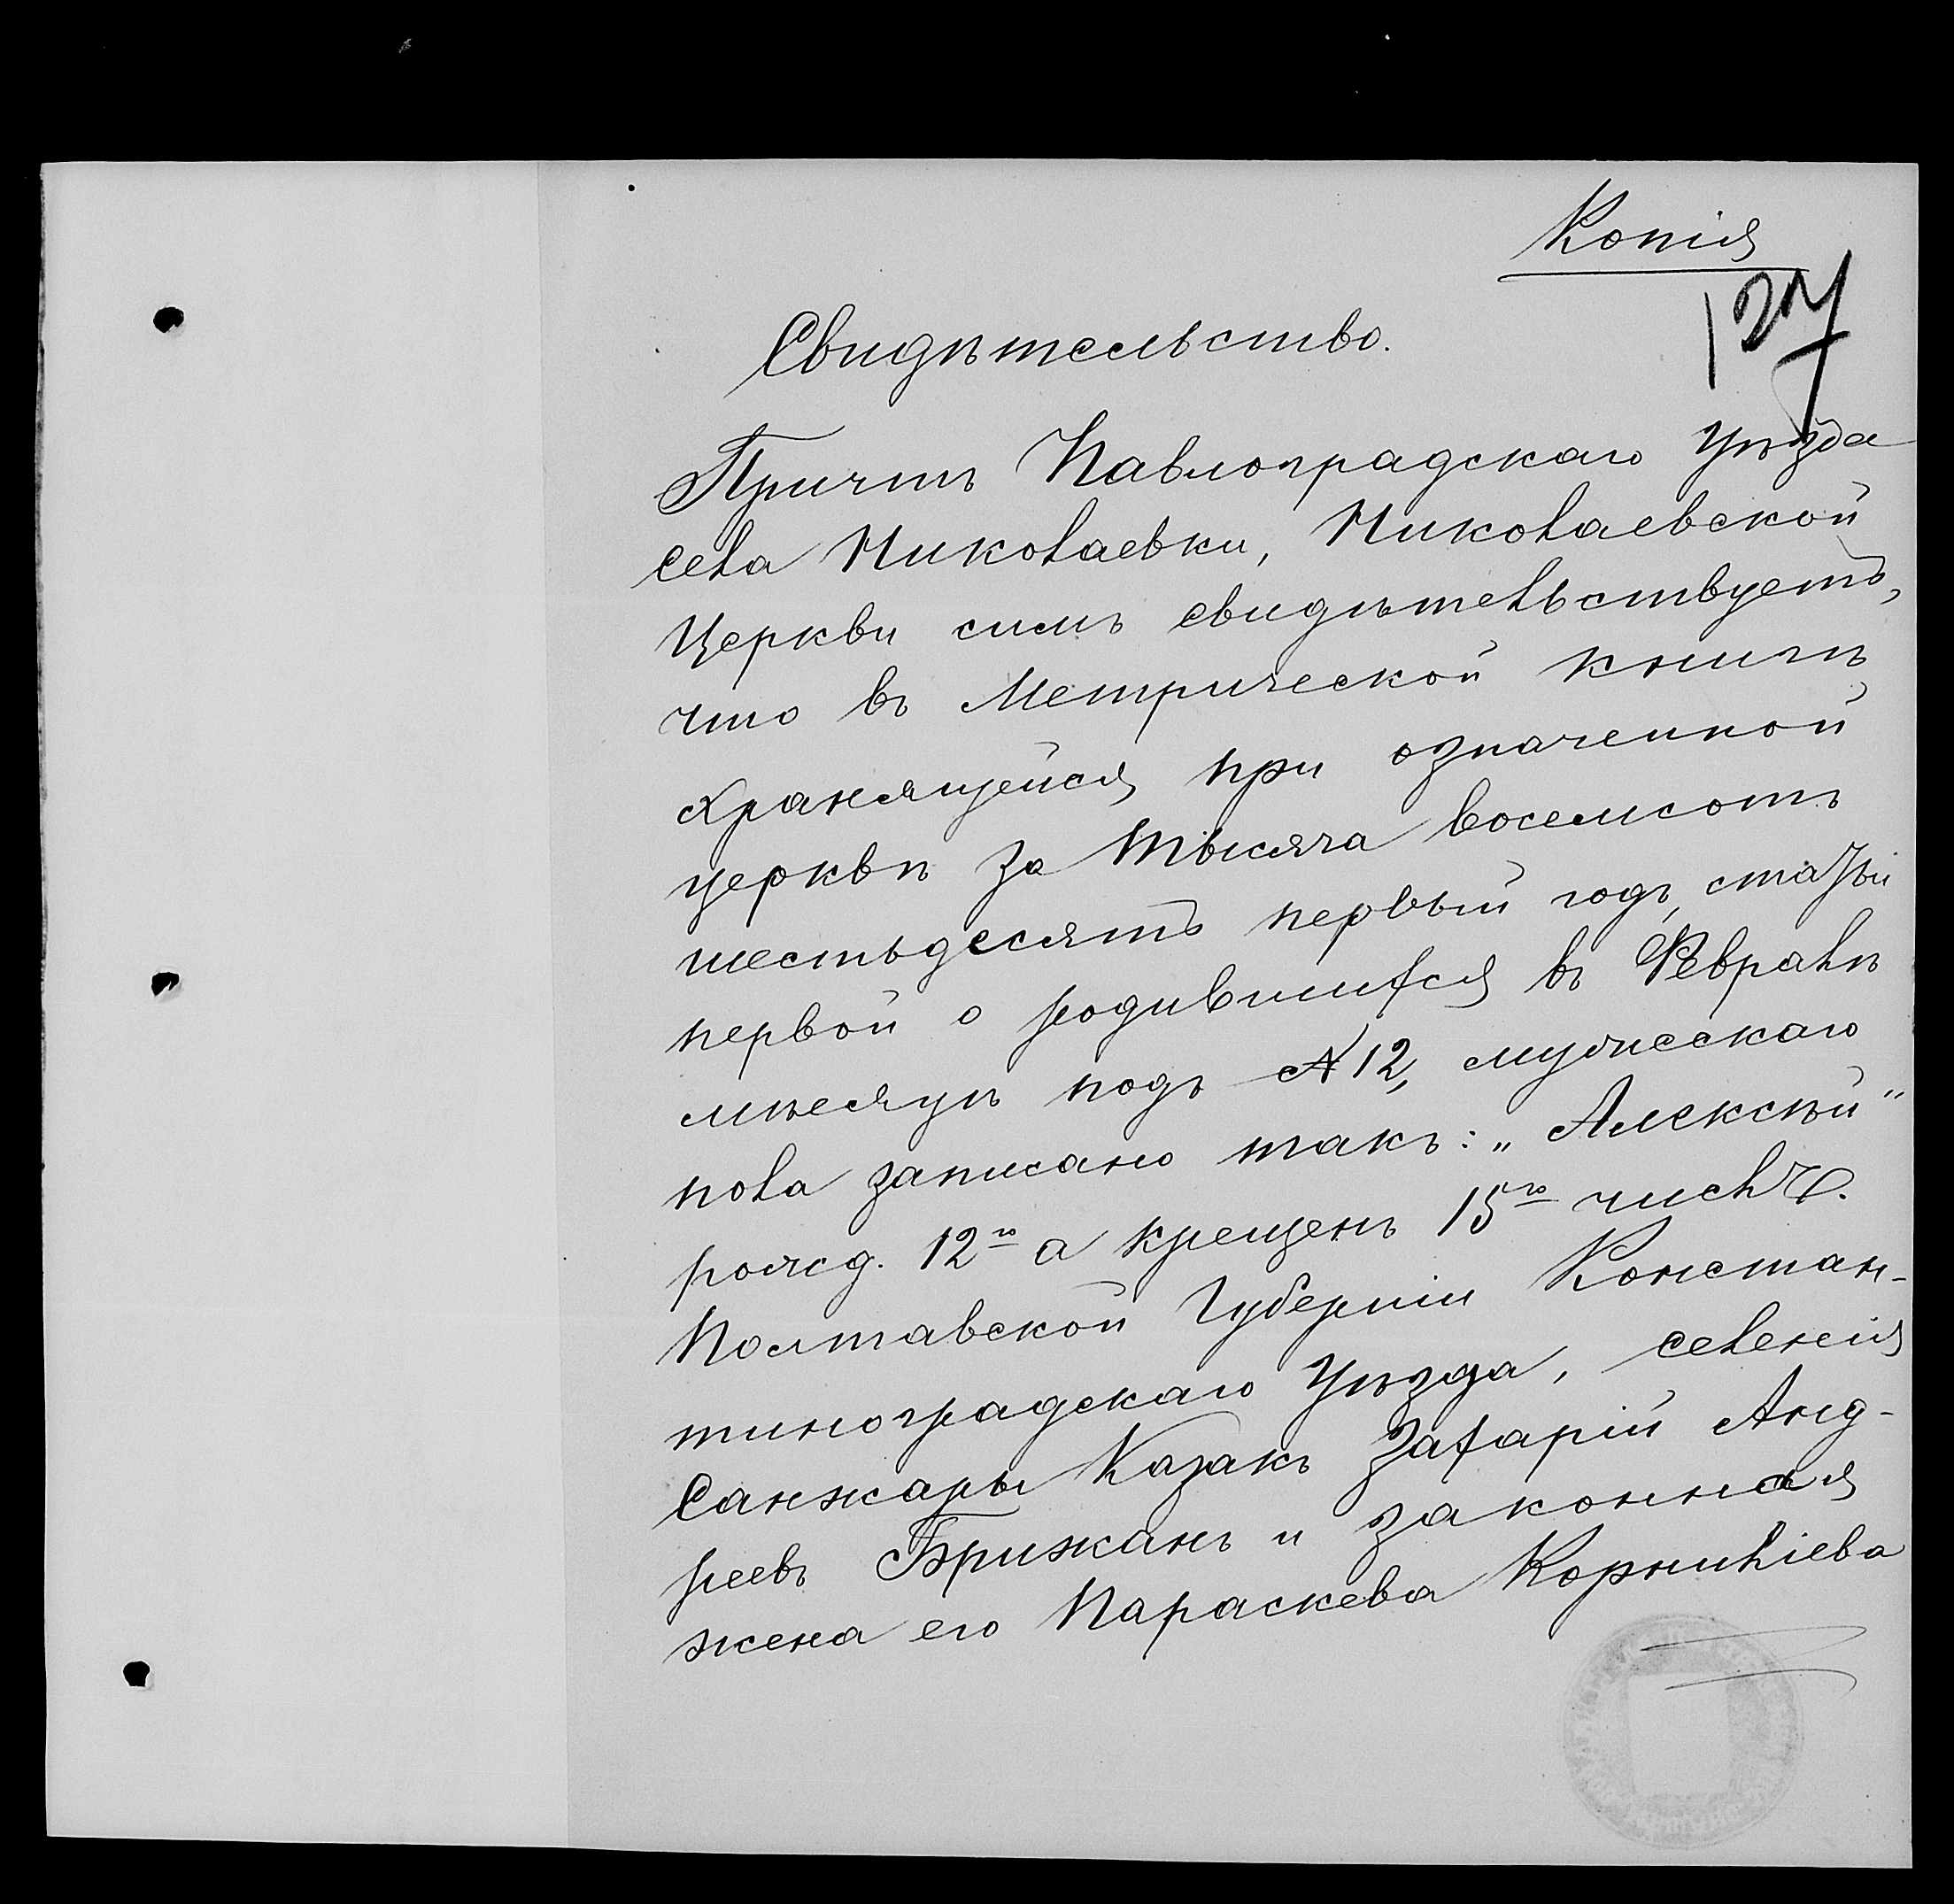 Копія
127
Свидѣтельство.
Причтъ Павлоградскаго Уѣзда
села Николаевки, Николаевской
Церкви симъ свидѣтельствуетъ,
что въ Метрической книгѣ
хранящейся при означенной
церквѣ за тысяча восемсотъ
шестьдесятъ первый годъ, статьи
первой о родившихся въ Февралѣ
мѣсяцѣ подъ № 12, мужескаго
пола записано такъ: „Алексѣй"
рожд. 12го а крещенъ 15го числъ.
Полтавской Губерніи Констан-
тиноградскаго Уѣзда, селенія
Санжары Казакъ Захарій Анд-
реевъ Брижанъ и законная
жена его Параскева Корниліева